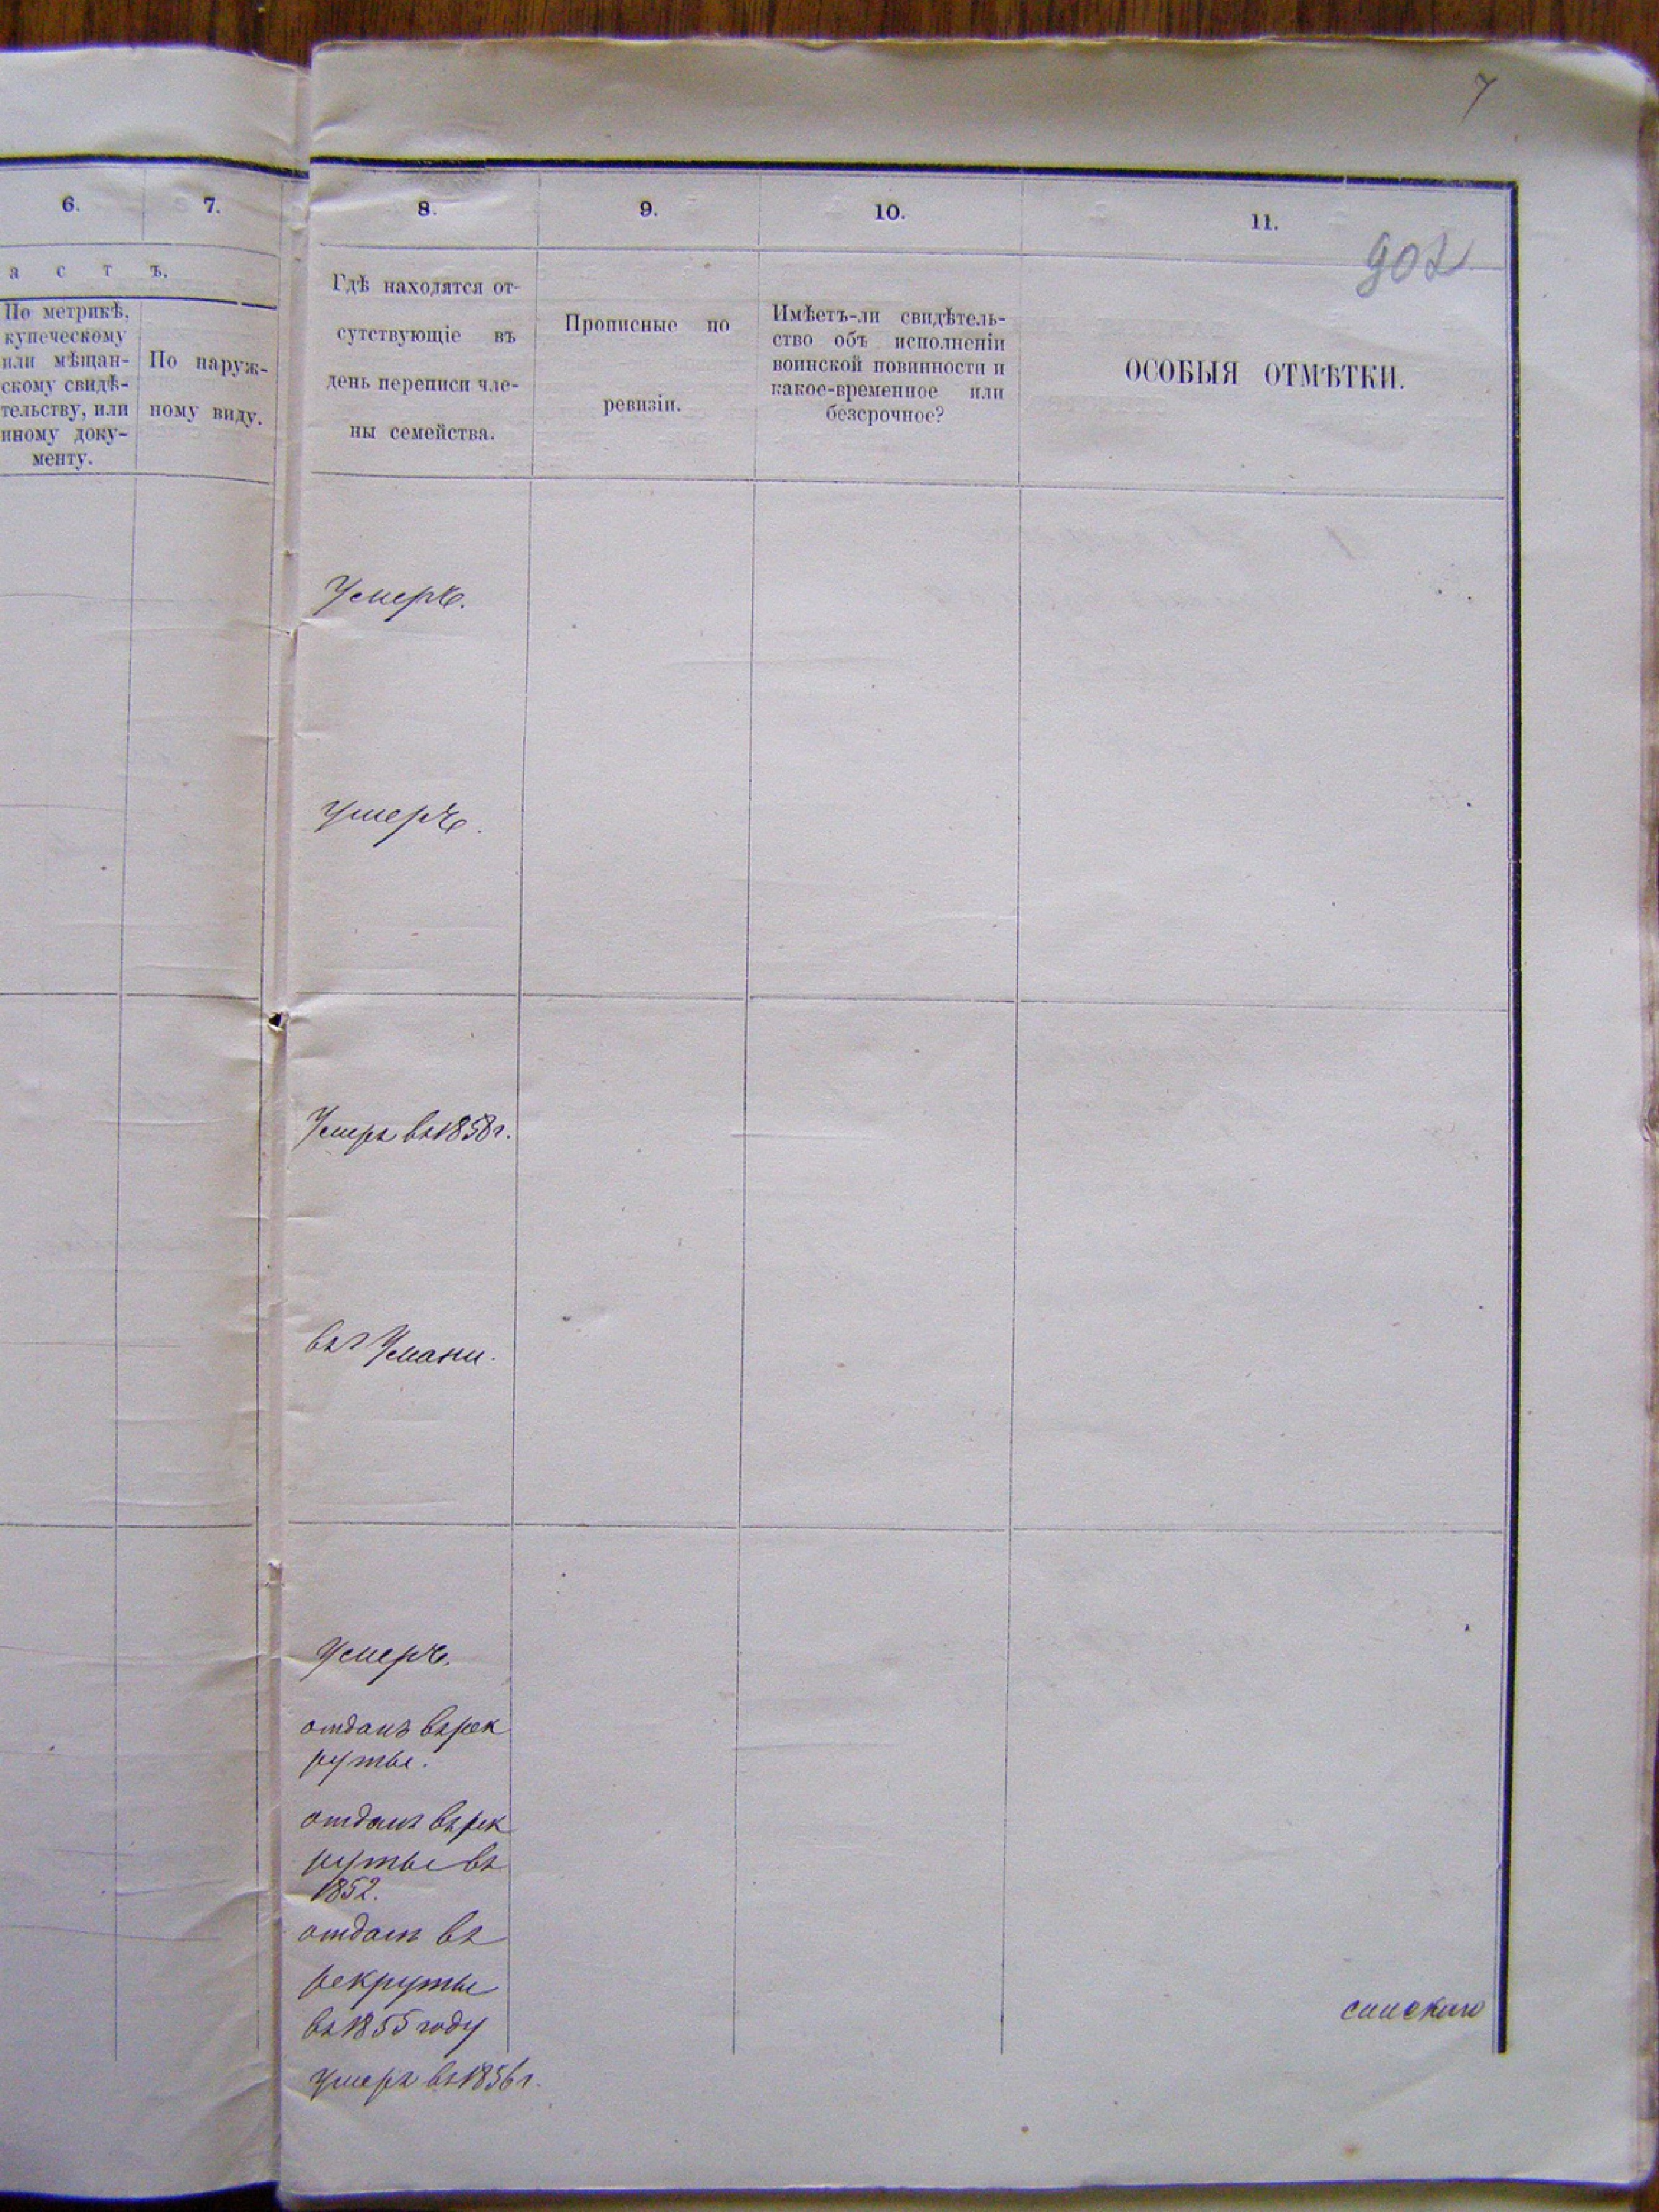 7
902
6.
7.
8.
9.
10.
11.
а с т ъ.
По метрикѣ,
купеческому
или мѣщан-
скому свидѣ-
тельству, или
иному доку-
менту.
По наруж-
ному виду.
Гдѣ находятся от-
сутствующіе въ
день переписи чле-
ны семейства.
Прописные по
ревизіи.
Имѣетъ-ли свидѣтель-
ство объ исполненіи
воинской повинности и
какое-временное или
безсрочное?
ОСОБЫЯ ОТМѢТКИ.
Умеръ.
умеръ.
Умеръ въ 1858 г.
въ г Умани.
Умеръ.
отданъ въ рек
руты.
отданъ въ рек
руты въ
1852.
отданъ въ
рекруты
въ 1855 году
умеръ въ 1856 г.